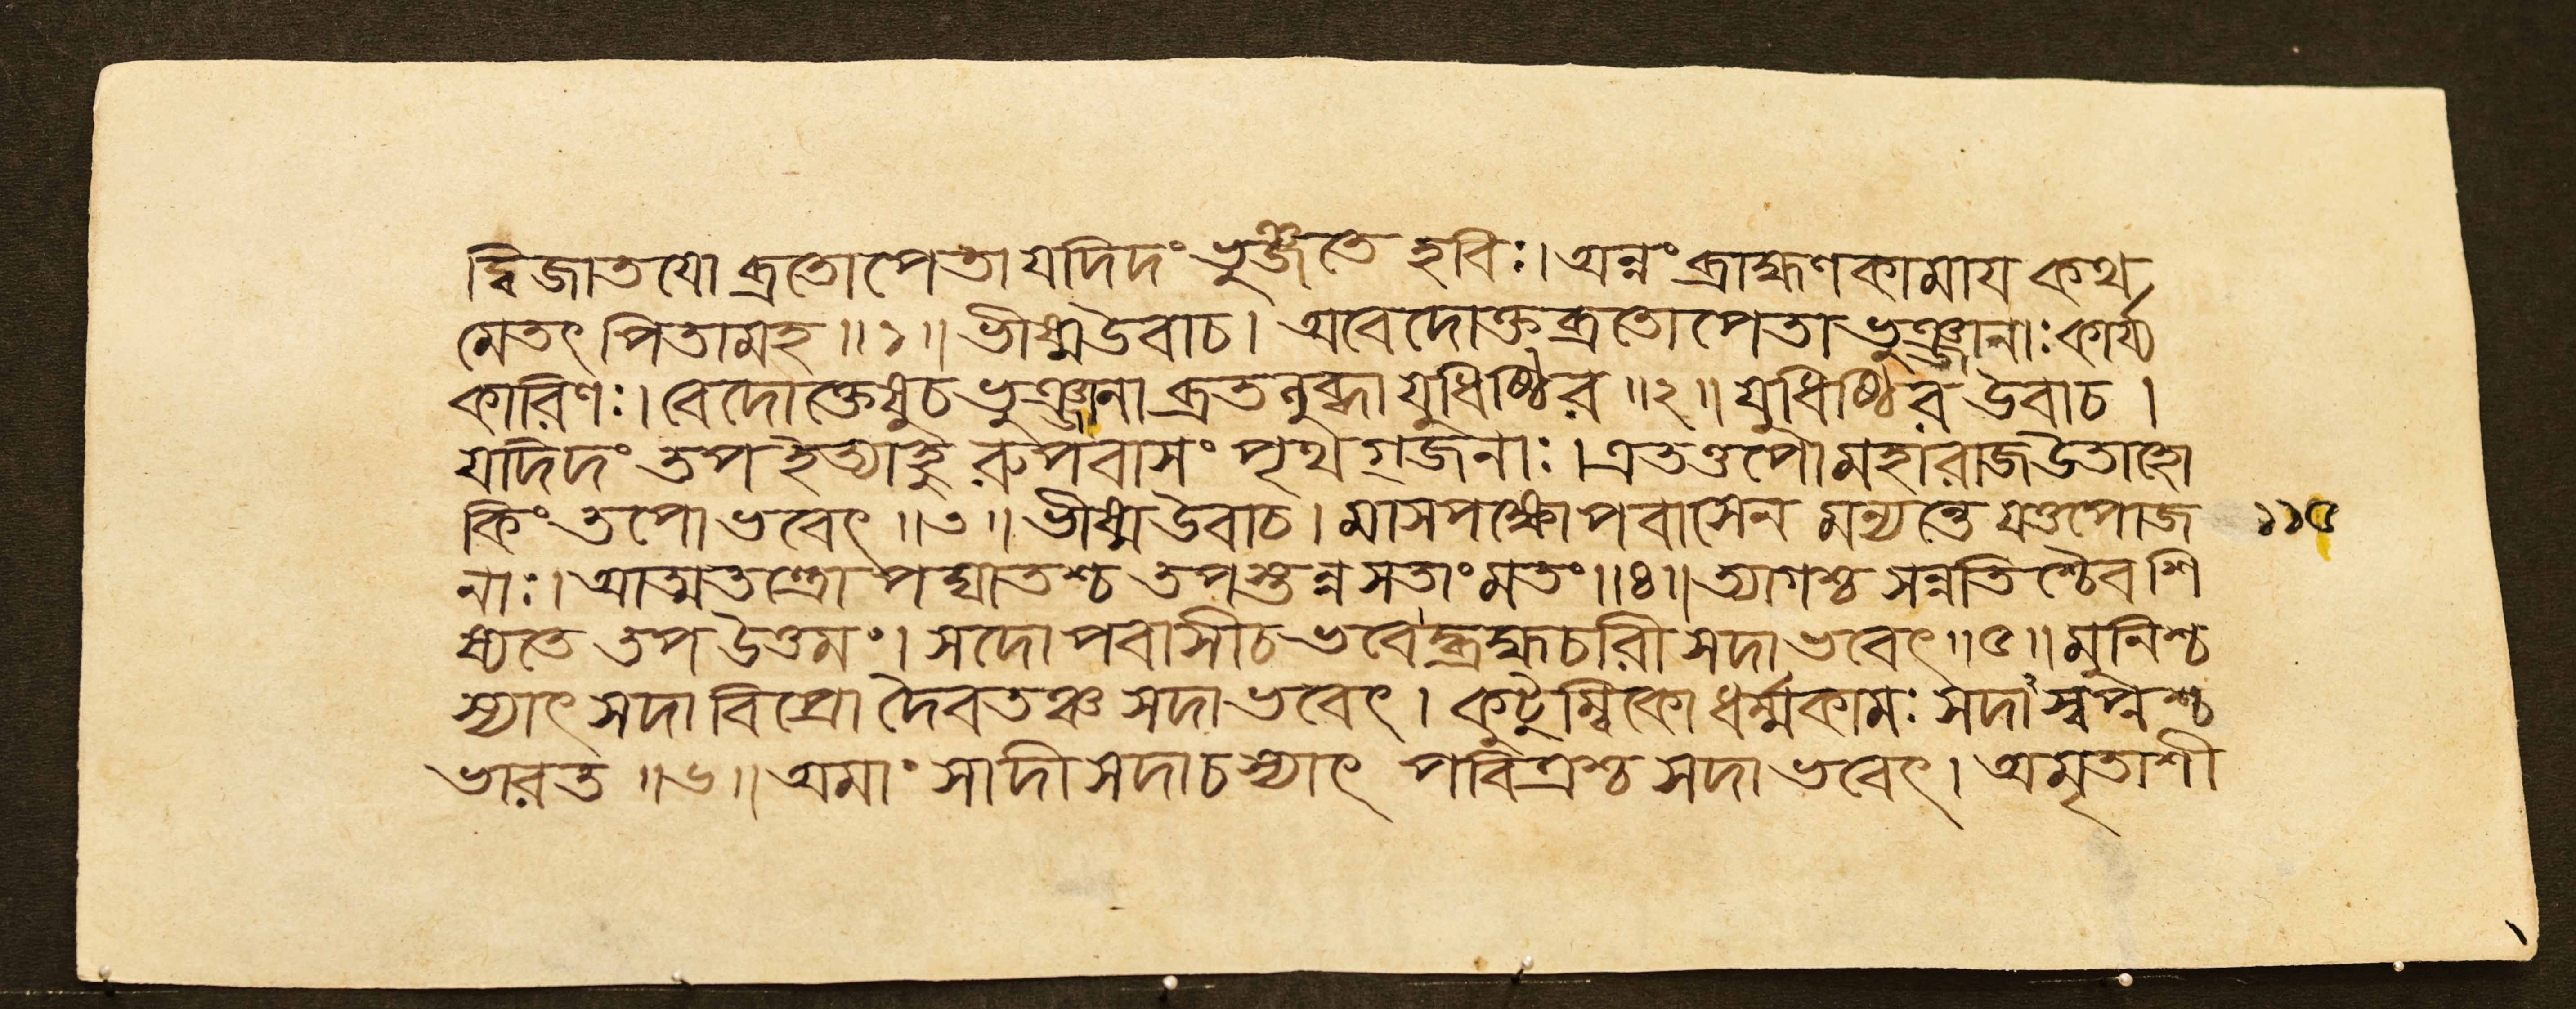 দ্বিজাতযো ব্রতোপেতা যদিদং ভুঞ্জতে হবিঃ। অন্নং ব্রাহ্মণকামায কথ
মেতৎ পিতামহ ॥১॥ ভীষ্মউবাচ। অবেদোক্তব্রতোপেতা ভুঞ্জানাঃ কার্য্য
কারিণঃ। বেদোক্তেষু চ ভুঞ্জানা ব্রতলুব্ধা যুধিষ্ঠির ॥২॥ যুধিষ্ঠির উবাচ।
যদিদং তপ ইত্যাহু রুপবাসং পৃথগ্জনাঃ। এতত্তপো মহারাজ উতাহো
কিং তপো ভবেৎ ॥৩॥ ভীষ্ম উবাচ। মাসপক্ষোপবাসেন মন্যন্তে যত্তপোজ ১১৫
নাঃ। আত্মতন্ত্রোপঘাতশ্চ তপস্তন্ন সতাং মতং ॥৪॥ ত্যাগশ্চ সন্নতিশ্চৈব শি
ষ্যতে তপ উত্তমং। সদোপবাসী চ ভবেদ্ব্রহ্মচারী সদা ভবেৎ ॥৫॥ মুনিশ্চ
স্যাৎ সদা বিপ্রো দৈবতঞ্চ সদা ভবেৎ। কুটুম্বিকো ধর্ম্মকামঃ সদাস্বপ্নশ্চ
ভারত ॥৬॥ অমাংসাদী সদা চ স্যাৎ পবিত্রশ্চ সদা ভবেৎ। অমৃতাশী